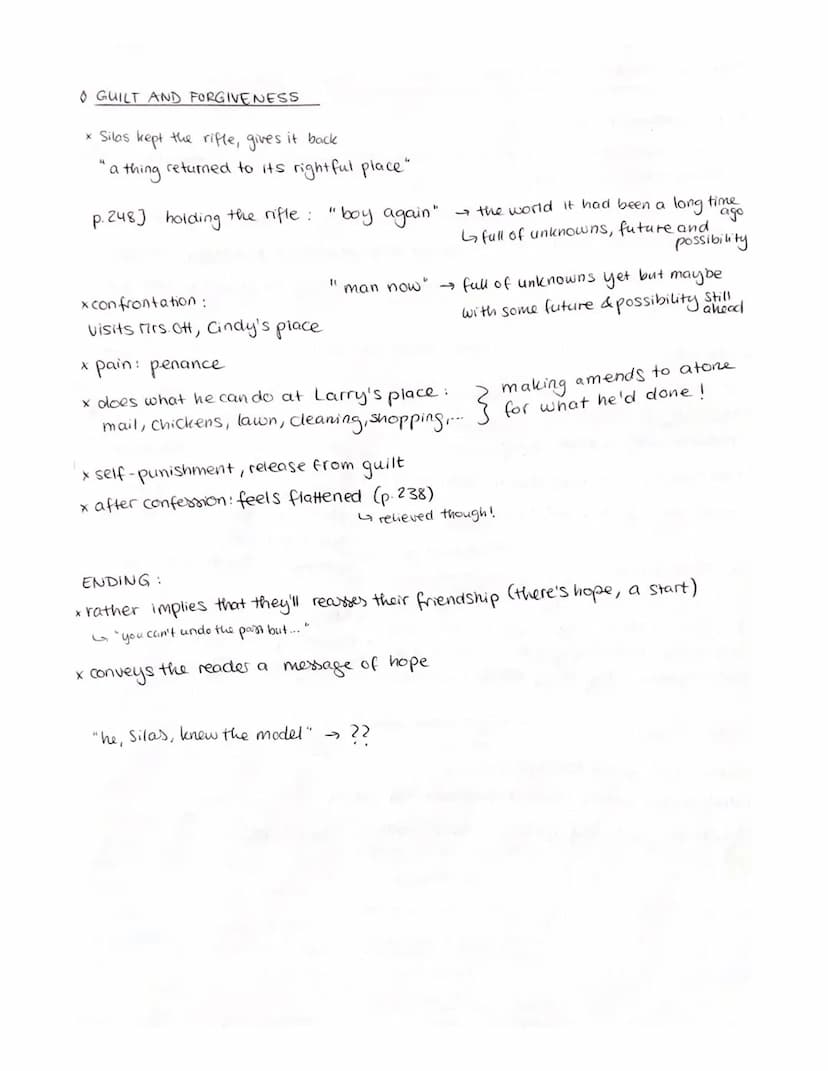 ◊ GUILT AND FORGIVENESS
x Silas kept the rifle, gives it back
"a thing returned to its rightful place"
p.248] holding the rifle : "boy again" → the world it had been a long time ago
↳ full of unknowns, future and possibility
"man now" → full of unknowns yet but maybe
with some future & possibility still ahead
x confrontation :
visits Mrs. Ott, Cindy's place
x pain: penance
x does what he can do at Larry's place :
mail, chickens, lawn, cleaning, shopping,...
} making amends to atone
for what he'd done !
x self-punishment, release from guilt
x after confession: feels flattened (p. 238)
↳ relieved though!
ENDING :
x rather implies that they'll reasses their friendship (there's hope, a start)
↳ "you can't undo the past but..."
x conveys the reader a message of hope
"he, Silas, knew the model" → ??